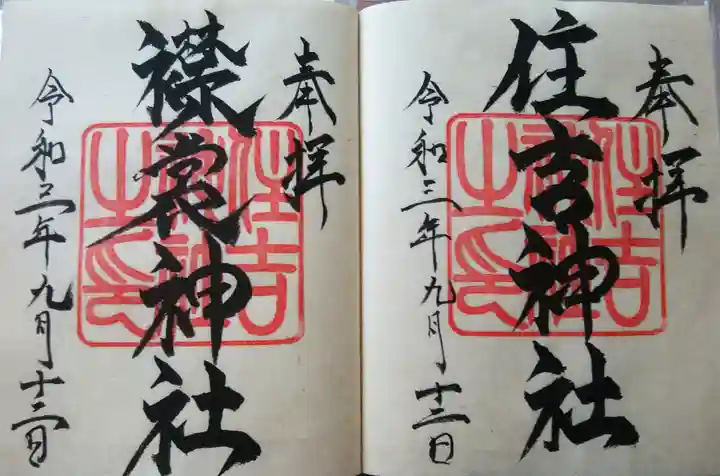 奉拝
住吉神社
令和三年九月十二日
住吉
神社
之印
奉拝
襟裳神社
令和三年九月十二日
住吉
神社
之印